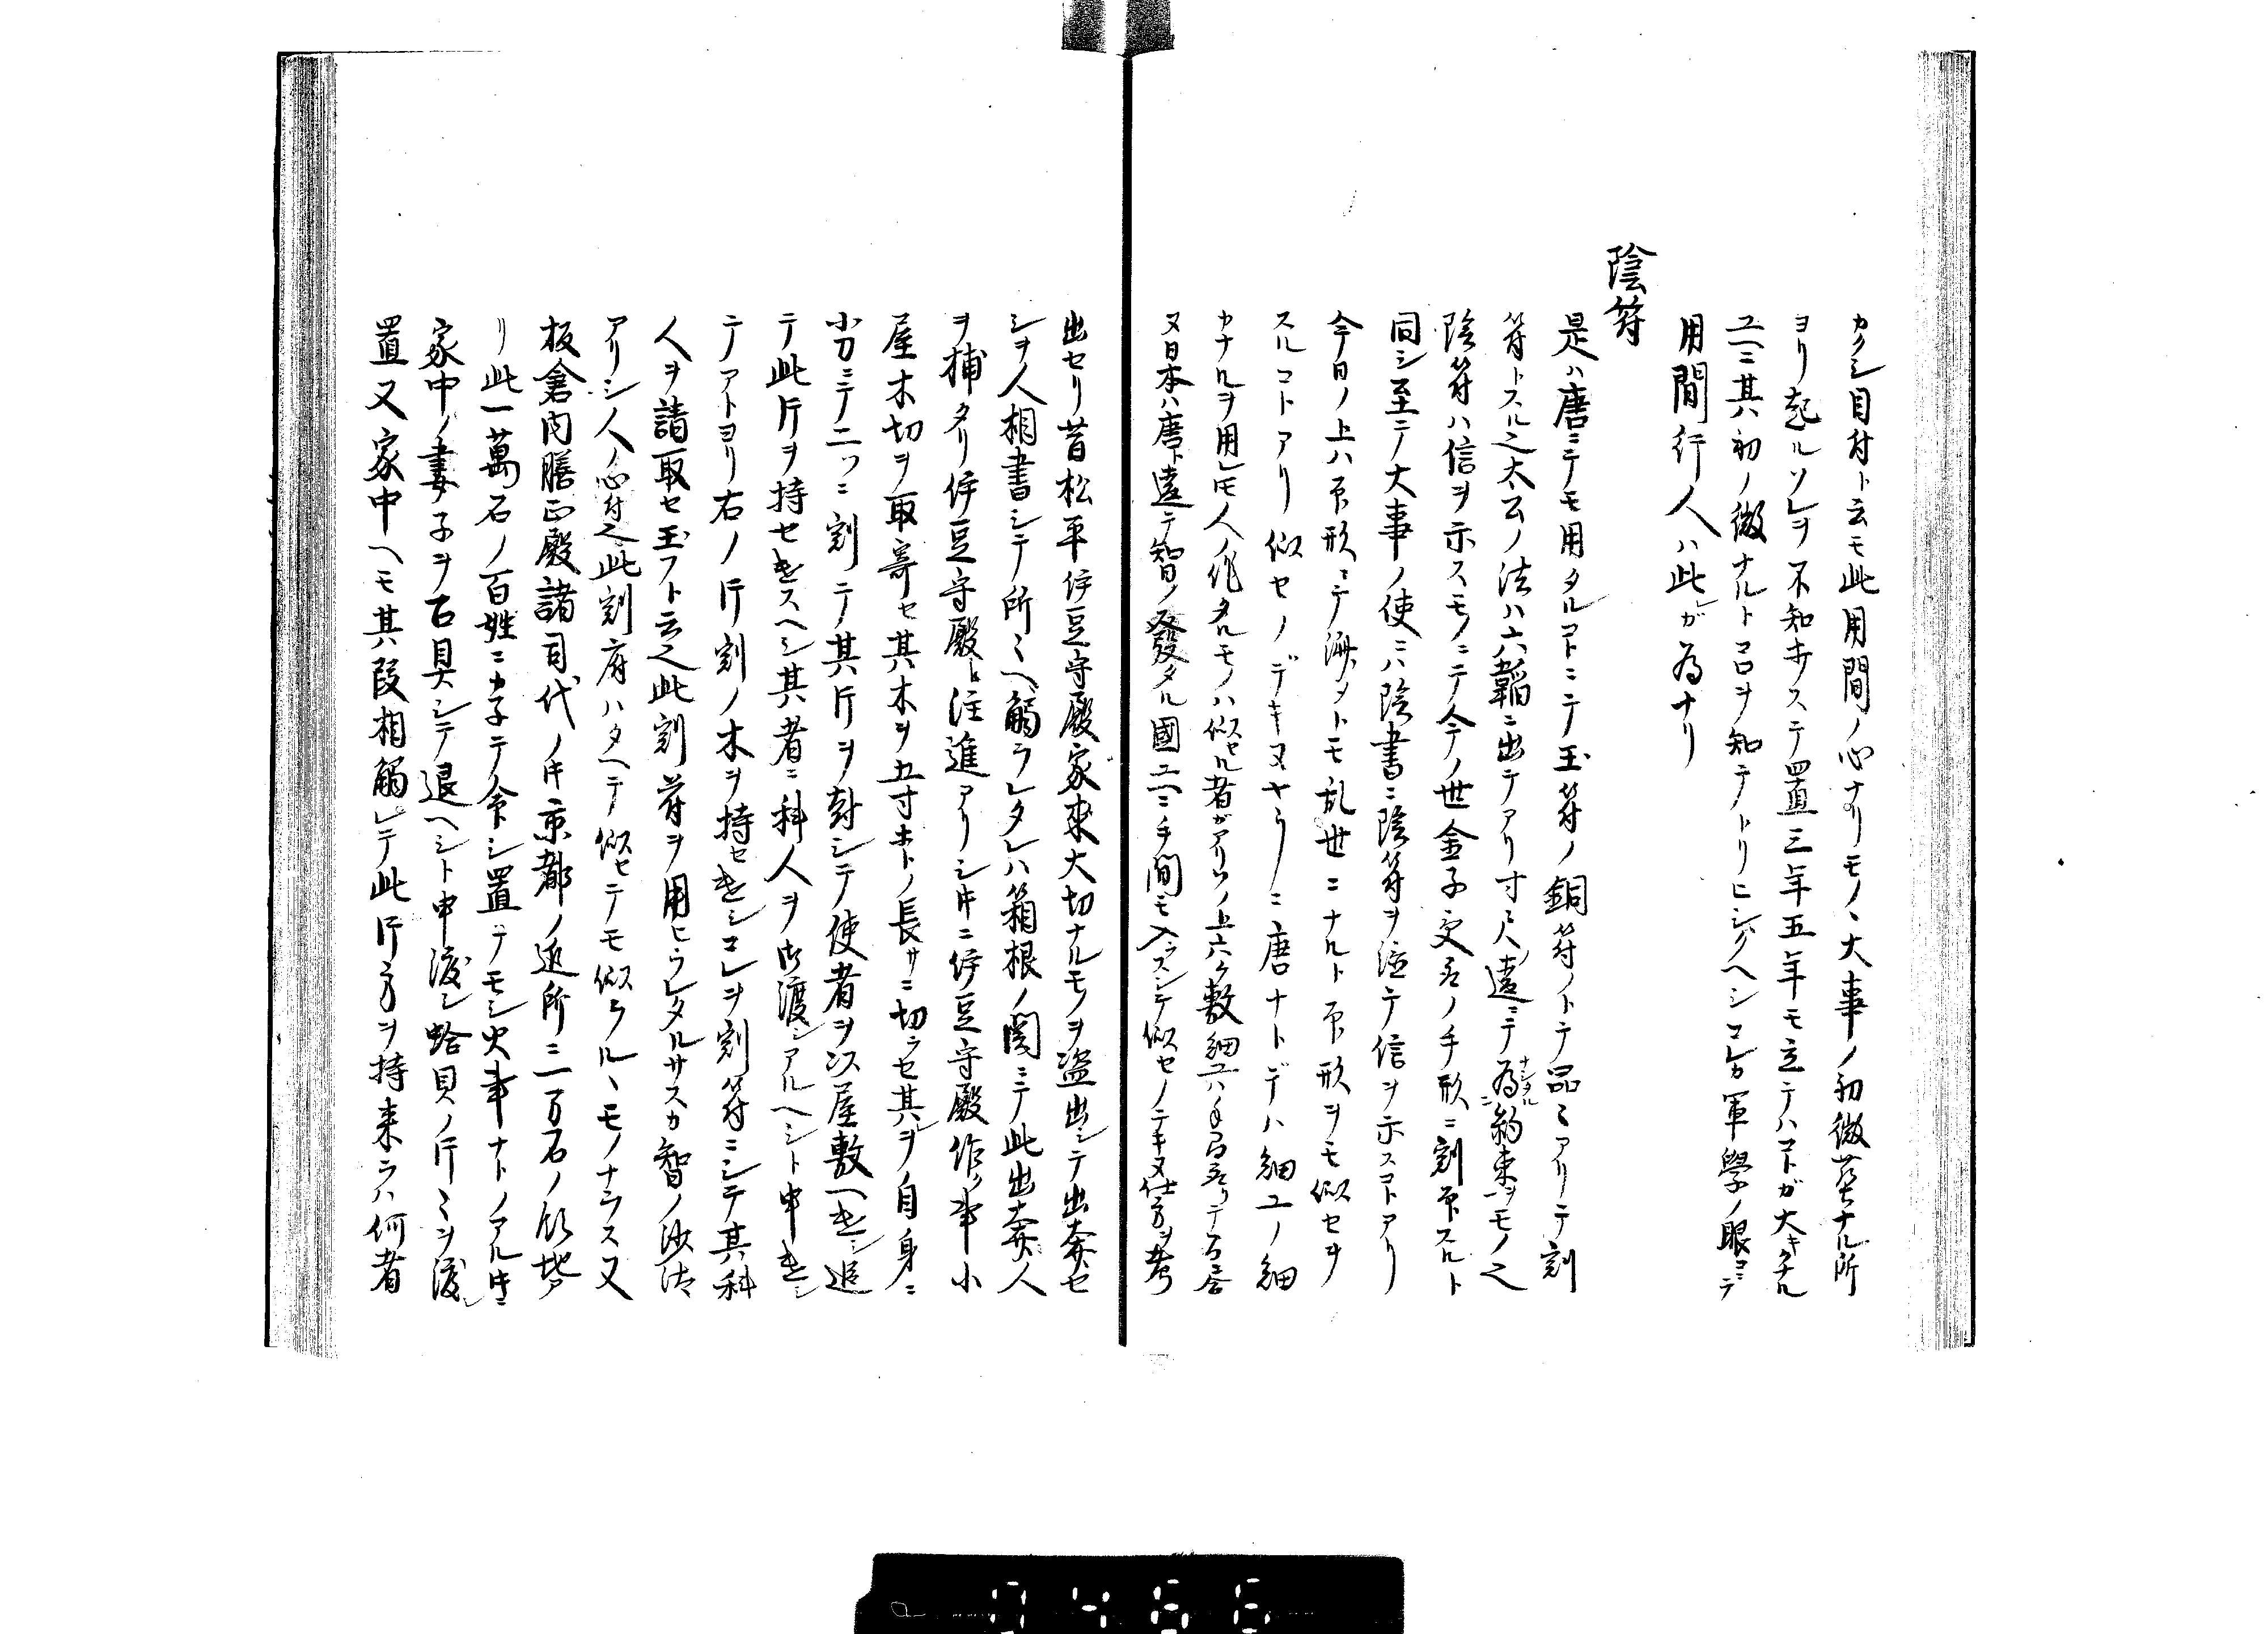 カクシ目付ト云モ此用間ノ心ナリモノヽ大事ノ初微茫ナル所
ヨリ起ルソレヲ不知ホステ置三年五年モ立テハコトガ大キクナル
ユヘニ其初ノ微ナルトコロヲ知テトリヒシグヘシコレカ軍學ノ眼コヽテ
用間行人ハ此レガ為ナリ
陰符
是ハ唐ニテモ用タルコトニテ玉符ノ銅符ノトテ品ミアリテ割
符トスル之太公ノ法ハ六韜ニ出テアリ寸尺違ニテ為約束ヲモノ之
陰符ハ信ヲ示スモノニテ今ノ世金子交易ノ手形ニ割印スルト
同シ至テ大事ノ使ニハ陰書ニ陰符ヲ添テ信ヲ示スコトアリ
今日ノ上ハ印形ニテ濟メトモ乱世ニナルト印形ヲモ似セヲ
スルコトアリ似セノデキヌヤウニ唐ナトデハ細工ノ細
カナルヲ用レモ人ノ作タルモノハ似セル者ガアリソノ上六ケ敷細工ハ
又日本ハ唐ト違テ智ノ發タル國ユヘニ手間モ入ラスシテ似セノテキヌ仕方ヲ考
出セリ昔松平伊豆守殿家来大切ナルモノヲ盗出シテ出奔セ
シヲ人相書シテ所ミヘ觸ラレタレハ箱根ノ関ニテ此出奔人
ヲ捕タリ伊豆守殿ヘ注進アリシ時ニ伊豆守殿作事小
屋木切ヲ取寄セ其木ヲ五寸ホトノ長サニ切ラセ其レヲ自身ニ
小刀ニテ二ツニ割テ其片ヲ封シテ使者ヲ以屋敷ヘ遣シ追
テ此片ヲ持セ遣スヘシ其者ニ科人ヲ御渡シアルヘシト申遣シ
テアトヨリ右ノ片割ノ木ヲ持セ遣シコレヲ割符ニシテ其科
人ヲ請取セ玉フト云之此割符ヲ用ヒラレタルサスカ智ノ沙汰
アリシ人ノ心付之此割府ハタヘテ似セテモ似ラルヽモノナラス又
板倉内膳正殿諸司代ノ時京都ノ近所ニ一万石ノ領地ア
リ此一萬石ノ百姓ニカ子テ令シ置テモシ火事ナトノアル時ニ
家中ノ妻子ヲ召具シテ退ヘシト申渡シ蛤貝ノ片ミヲ渡シ
置又家中ヘモ其段相觸レテ此片方ヲ持来ラハ何者